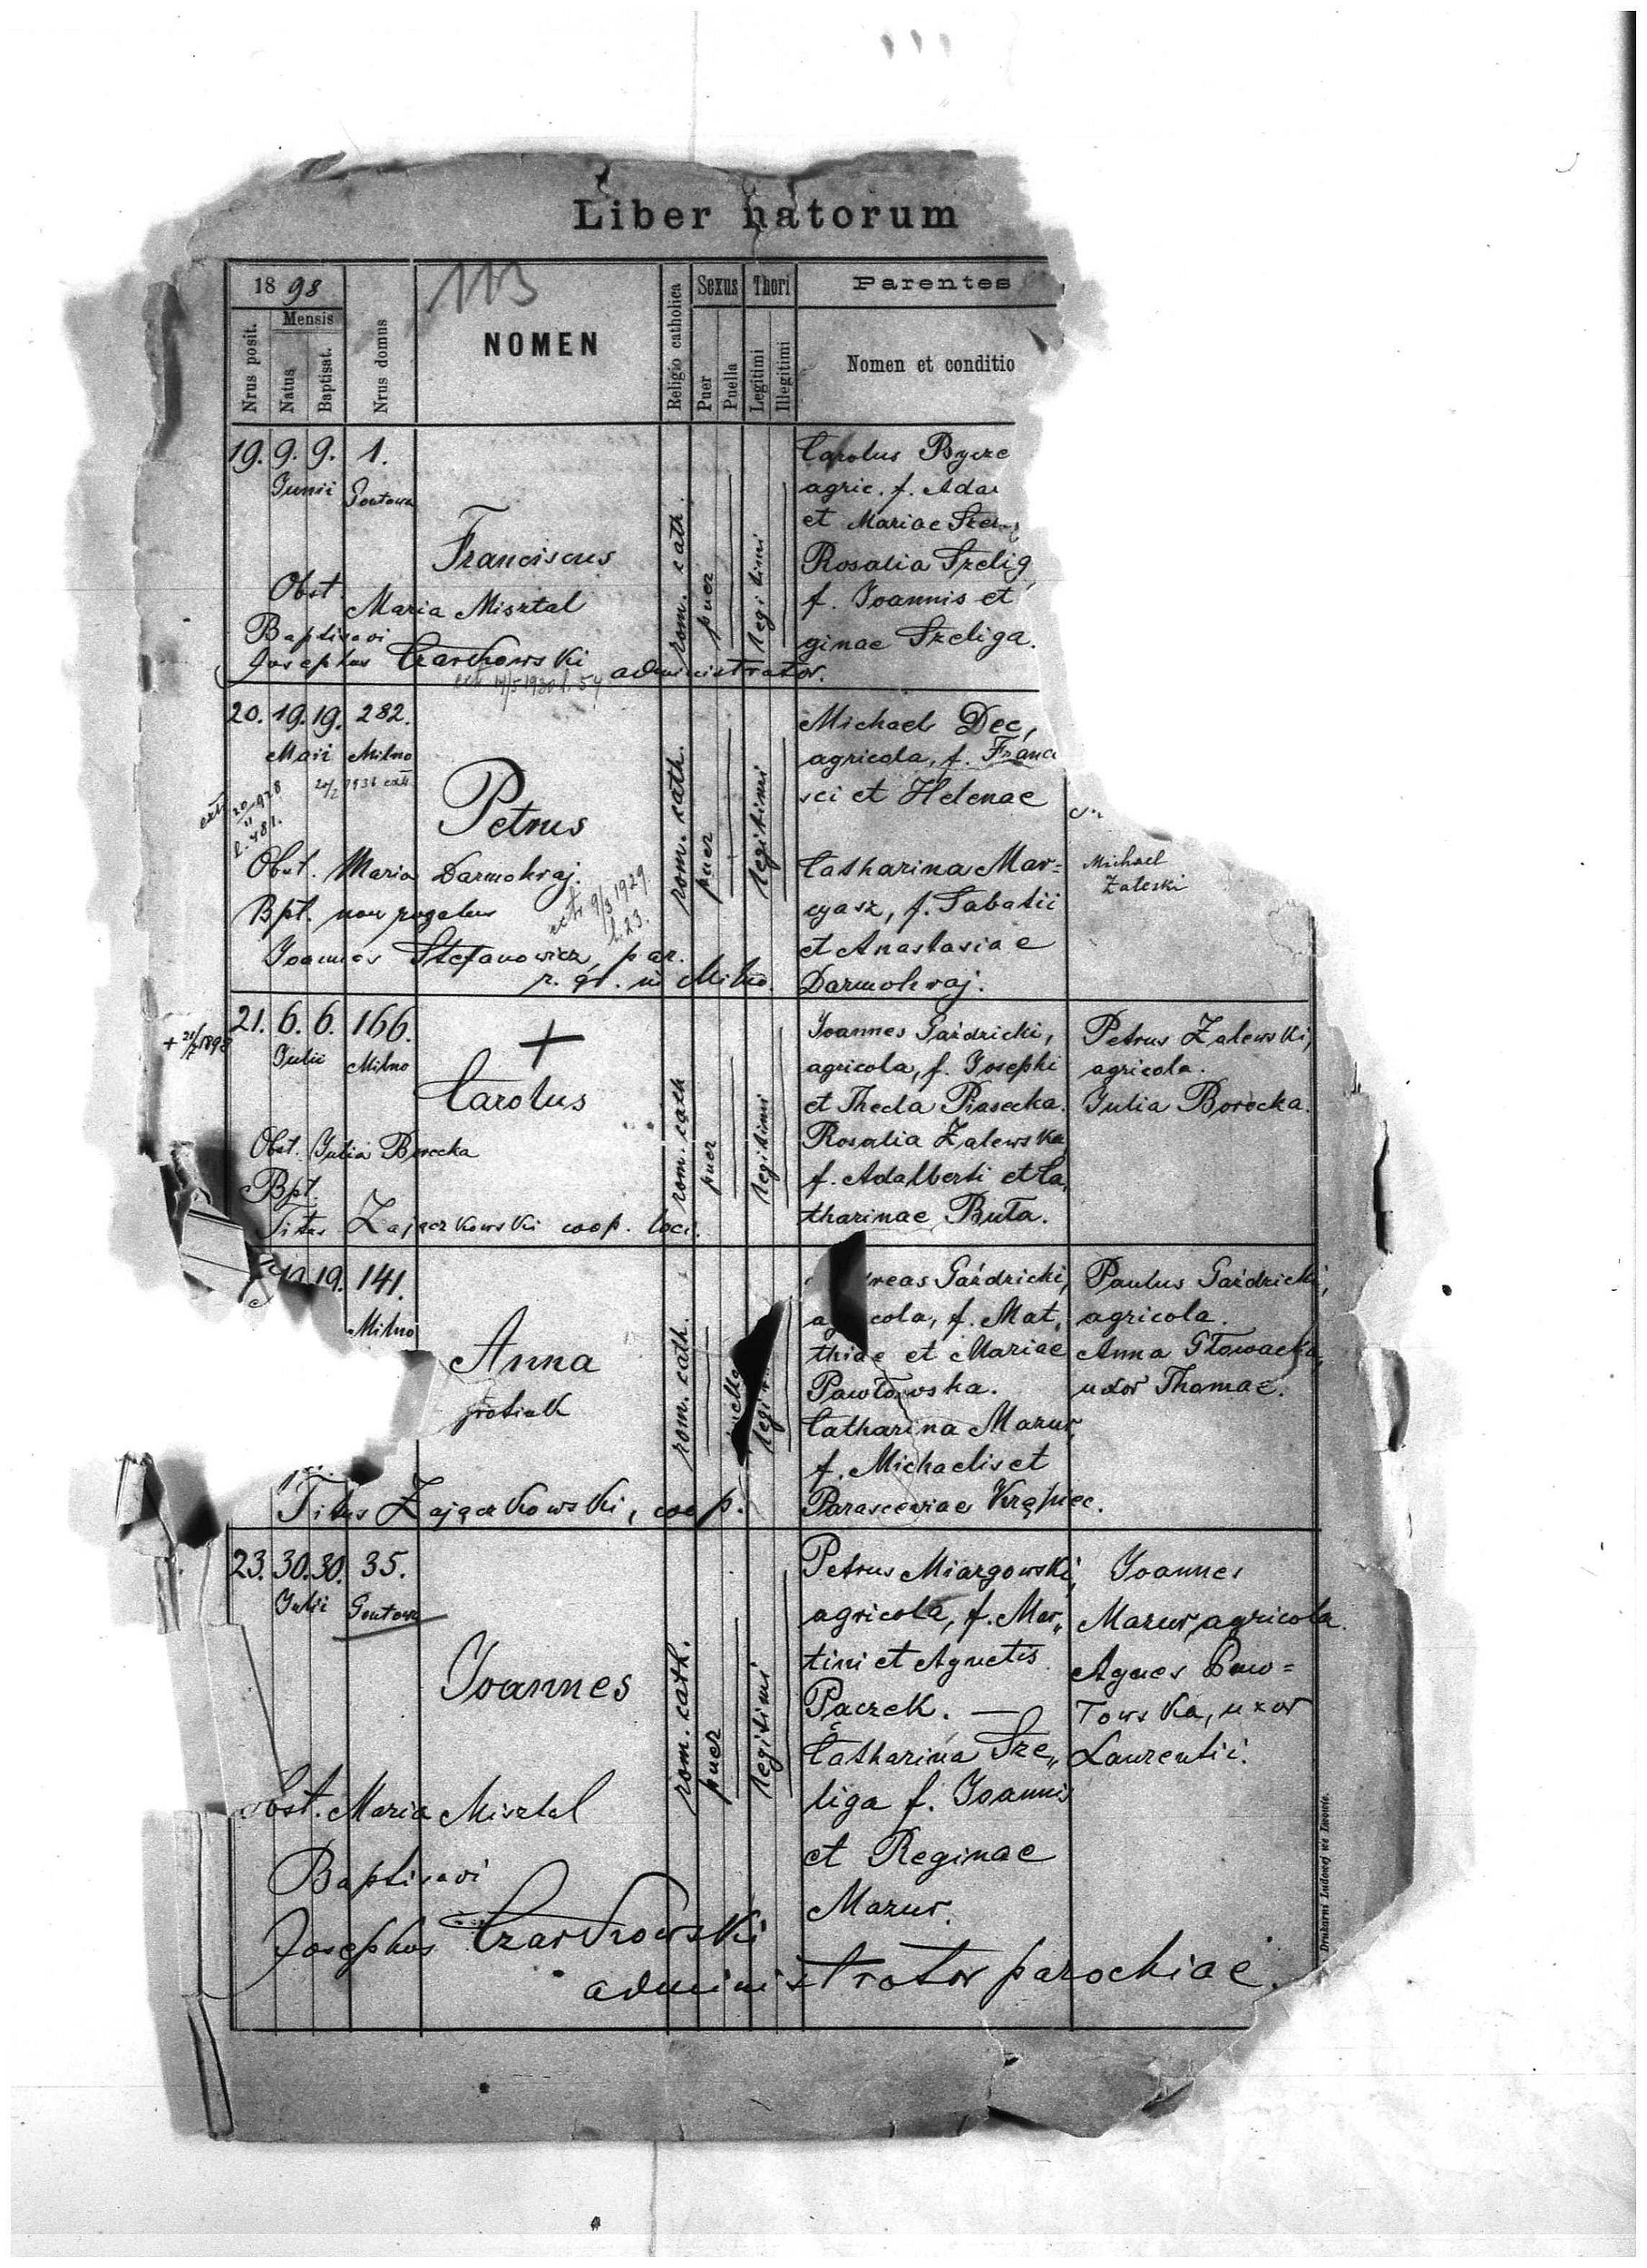 Liber natorum
1898
113
Nrus posit.
Mensis
Natus
Baptisat.
Nrus domus
NOMEN
Religio catholica
Sexus
Puer
Puella
Thori
Legitimi
Illegitimi
Parentes
Nomen et conditio
19. 9. 9. 1.
Junii
Franciscus
Obst.
Maria Misztal
Baptisavi
Josephus Czarkowski administrator.
rom. cath.
puer
legitimi
Carolus
agric. f.
et Mariae
Rosalia Szelig
f. Joannis et
ginae Szeliga.
20. 19. 19. 282.
Maii Milno
Petrus
Obst. Maria Darmohraj.
Bpt. non rogatus
Joannes Stefanowicz, par.
r. gr. in Milno.
rom. cath.
puer
legitimi
Michael Dec,
agricola, f. Franci
sci et Helenae
Catharina Mar=
cyasz, f. Sabatii
et Anastasiae
Darmohraj.
Michael
Zaleski
21. 6. 6. 166.
Julii Milno
+
Carolus
Obst. Julia Borocka
Bpt.
Titus Zajączkowski coop. loci.
rom. cath
puer
legitimi
Joannes Gaździcki,
agricola, f. Josephi
et Thecla Piasecka.
Rosalia Zalewska,
f. Adalberti et Ca,
tharinae Buta.
Petrus Zalewski,
agricola.
Julia Borocka.
19. 141.
Milno
Anna
Titus Zajączkowski, coop.
rom. cath.
reas Gaździcki,
cola, f. Mat,
thiae et Mariae
Pawłowska.
Catharina Mazur,
f. Michaelis et
Parasceviae Krąpiec.
Paulus Gaździcki,
agricola.
Anna Głowacka,
uxor Thomae.
23. 30. 30. 35.
Julii Gontowa
Joannes
Obst. Maria Misztal
Baptisavi
Josephus Czarkowski
administrator parochiae.
rom. cath.
puer
legitimi
Petrus Miazgowski,
agricola, f. Mar„
tini et Agnetis
Pączek. —
Catharina Sze„
liga f. Joannis
et Reginae
Mazur.
Joannes
Mazur, agricola.
Agnes Paw=
łowska, uxor
Laurentii.
Drukarni Ludowej we Lwowie.